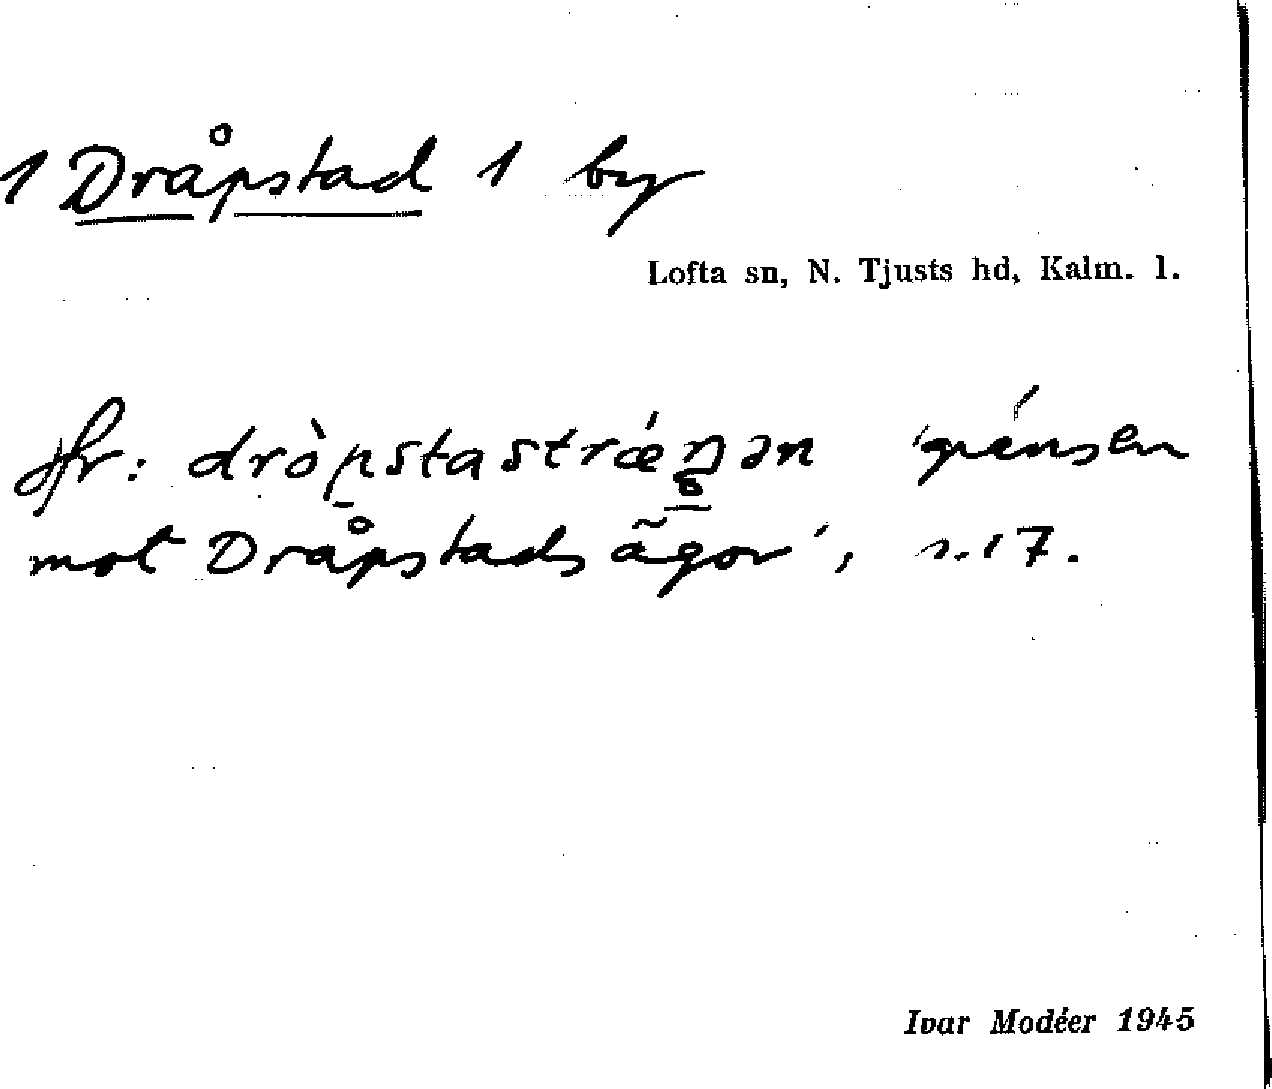 1 Dråpstad 1 by
Lofta sn, N. Tjusts hd, Kalm. l.
Jfr: dròpstastrǽŋən 'gränsen
mot Dråpstads ägor', s. 17.
Ivar Modéer 1945